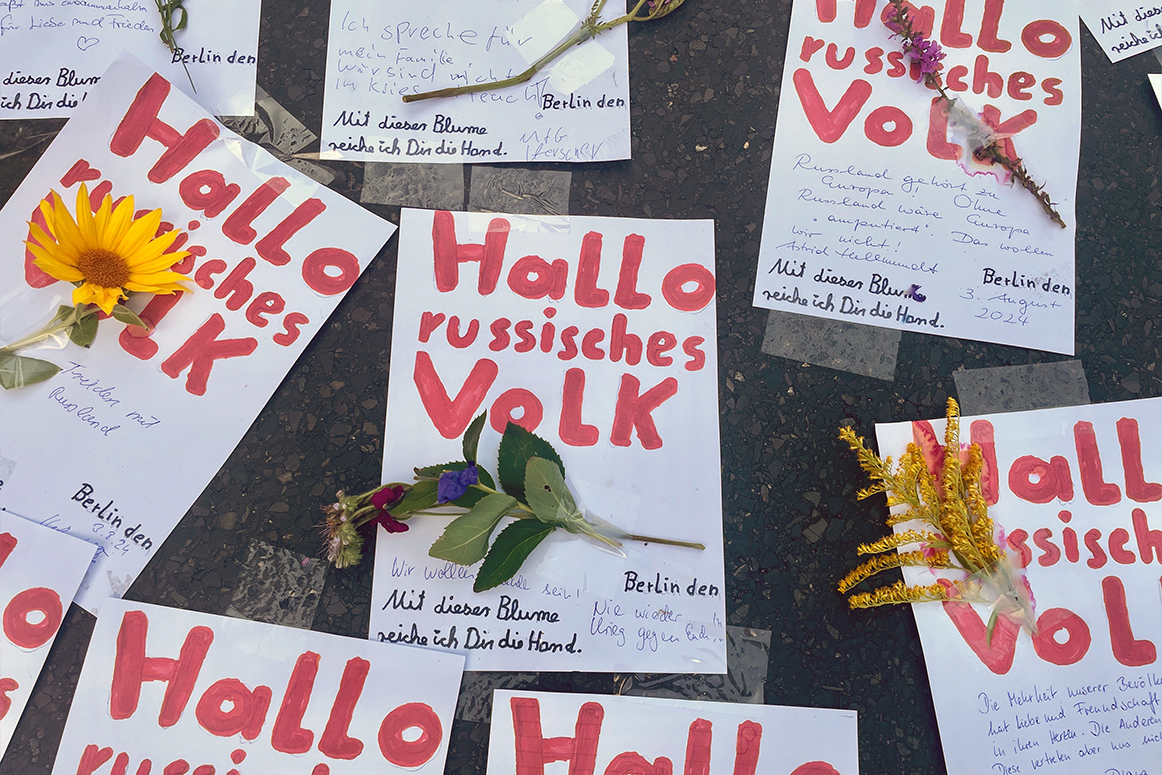 zusammenhalten
für Liebe und Frieden
Berlin den
dieser Blume
ich Dir die Hand.
Ich spreche für
mein Familie
wir sind nicht
im Krieg
Berlin den
Mit dieser Blume
reiche ich Dir die Hand.
MfG
Hallo
russisches
Volk
Russland gehört zu
Europa! Ohne
Russland wäre Europa
"amputiert". Das wollen
wir nicht!
Astrid
Mit dieser Blume
reiche ich Dir die Hand.
Berlin den
3. August
2024
Mit dieser
reiche ich
Hallo
russisches
Volk
Frieden mit
Russland
Berlin den
3.8.24
Hallo
russisches
Volk
Wir wollen
sein!
Mit dieser Blume
reiche ich Dir die Hand.
Berlin den
Nie wieder
Krieg gegen Euch!
Hallo
russisch
Vol
Die Mehrheit unserer Bevölke
hat Liebe und Freundschaft
in ihren Herzen. Die Anderen
Diese vertreten aber uns nich
lo
s
Hallo
russisches
Hallo